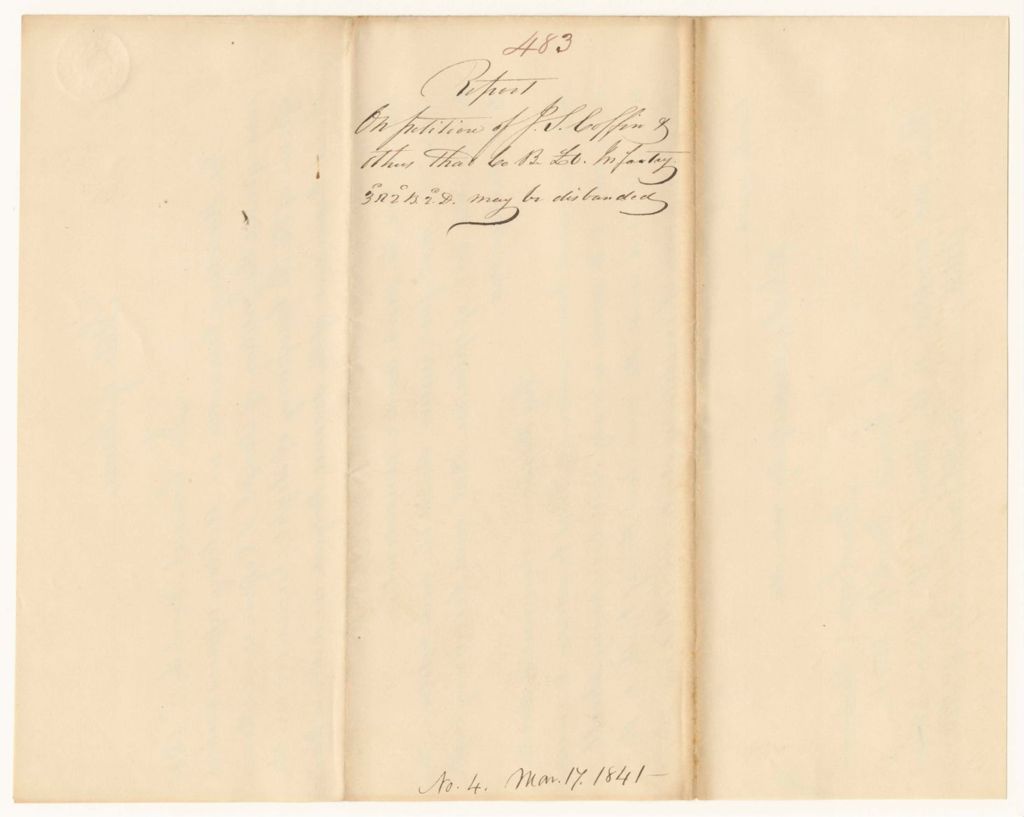 483
Report
On petition of J. S. Coffin &
others that Co B. Lt. Infantry
3d R 2d B. 2d D. may be disbanded
No. 4. Mar. 17. 1841 —